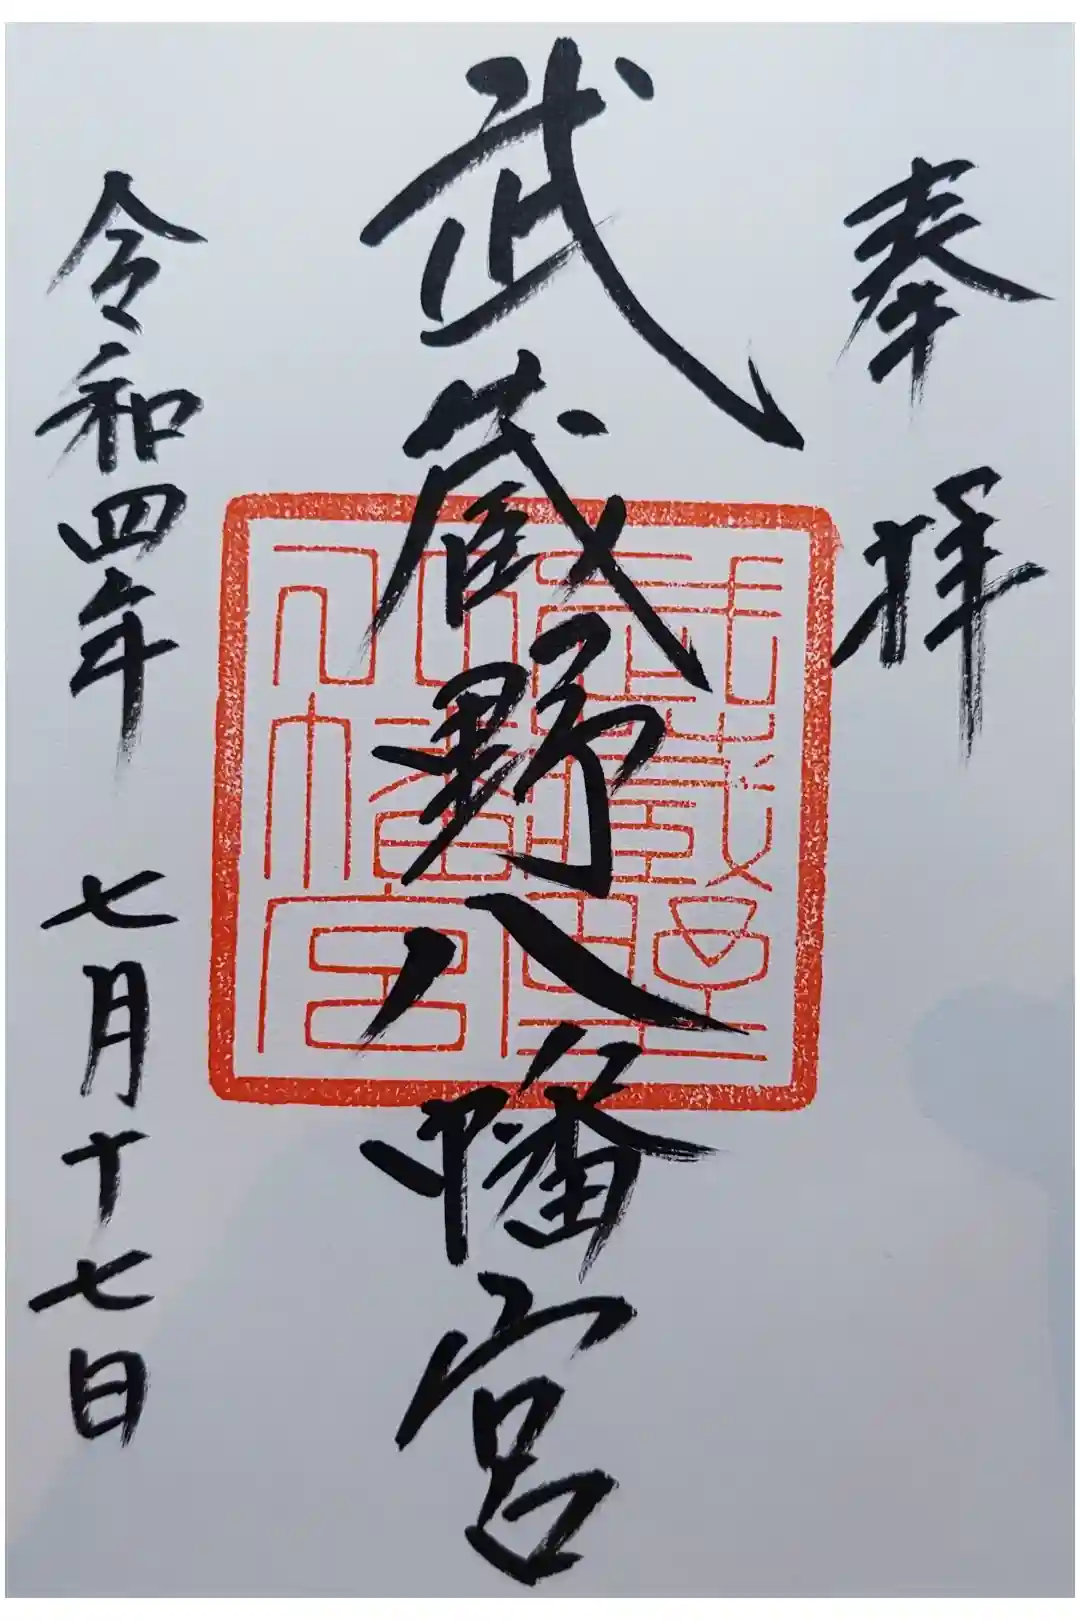 奉拝
武蔵野八幡宮
武蔵埜
八幡宮
令和四年 七月十七日